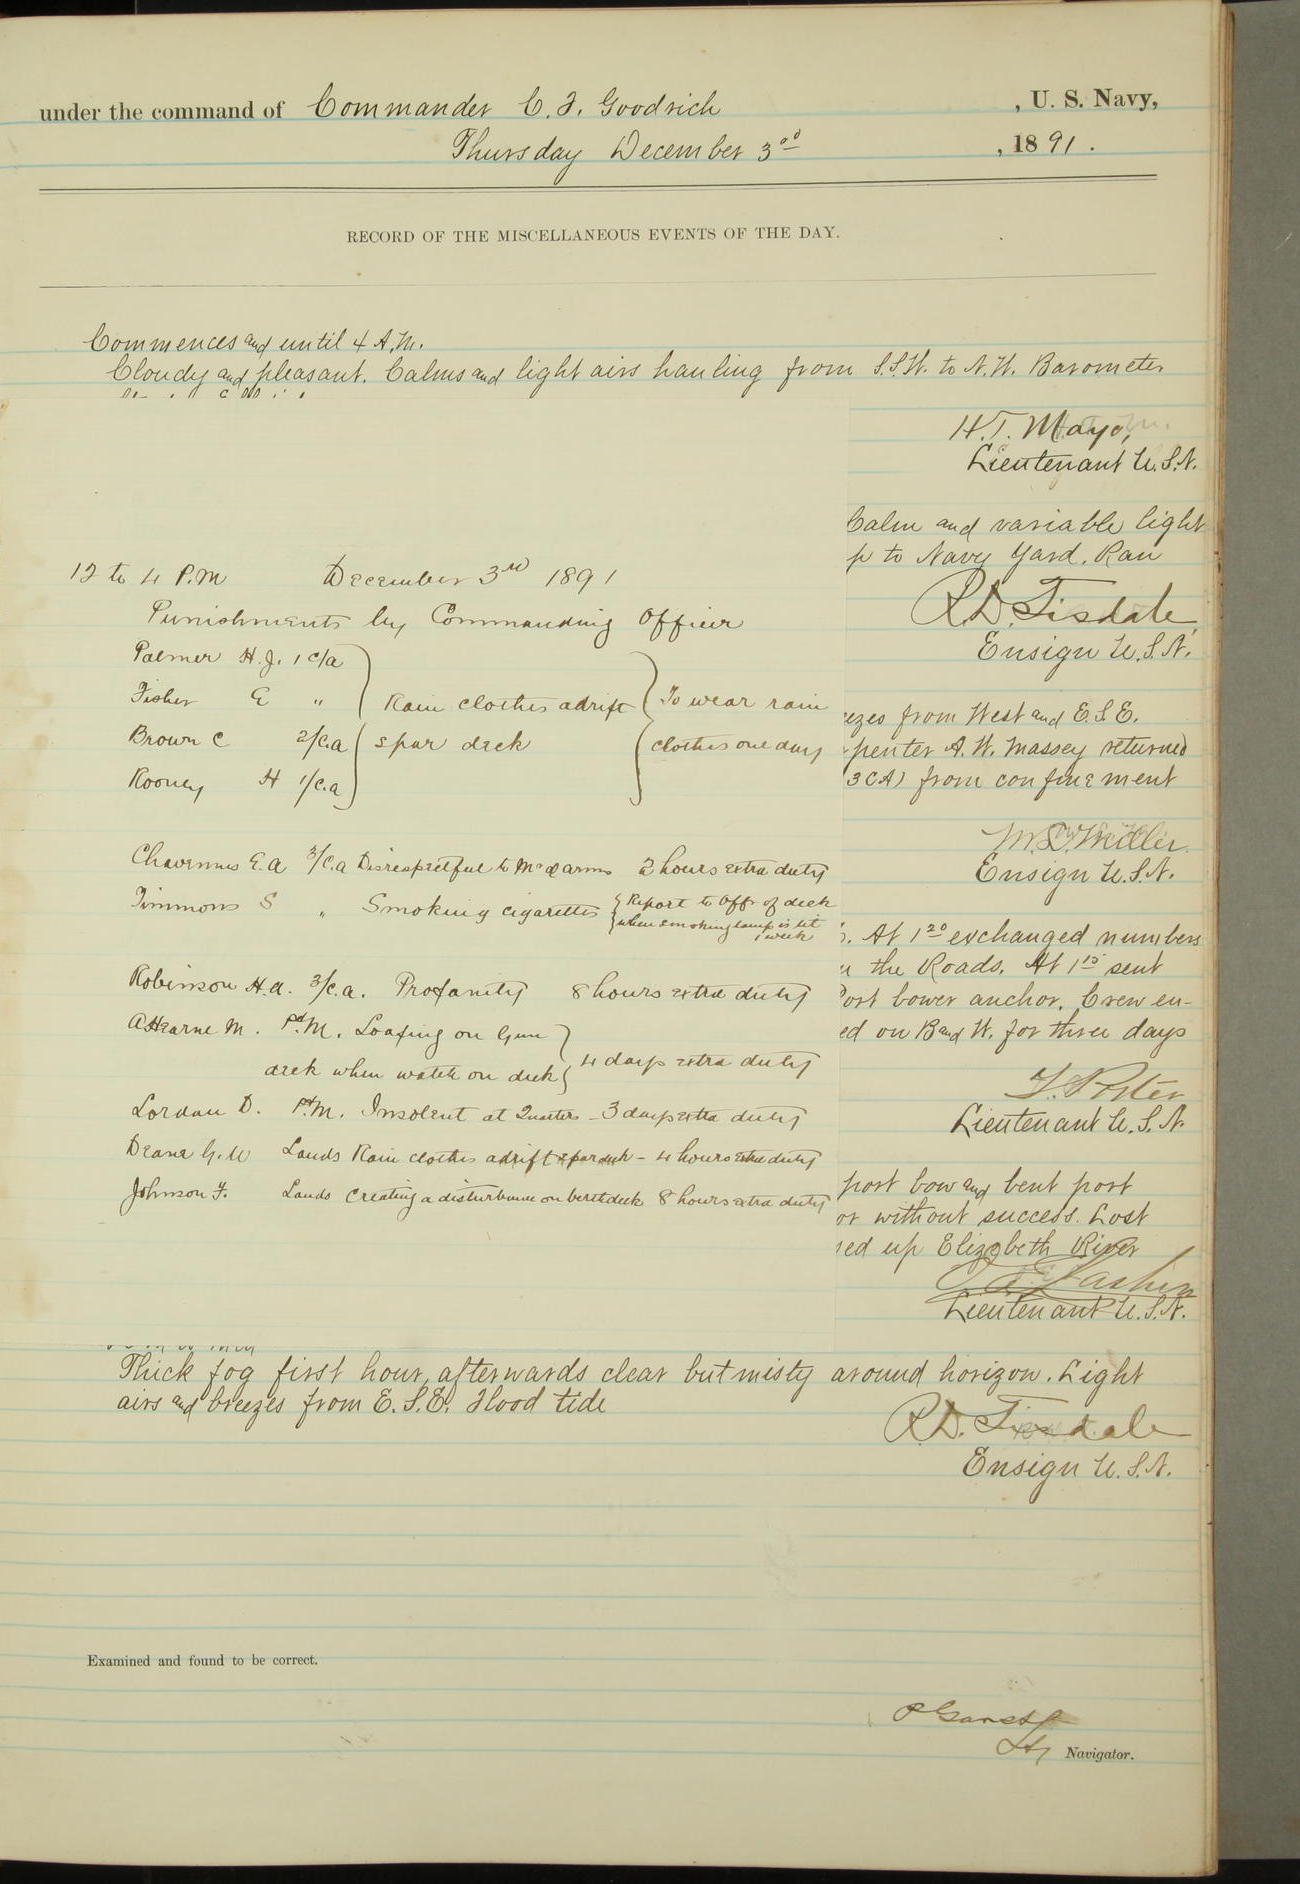 under the command of Commander C. F. Goodrich , U. S. Navy,
Thursday December 3rd , 1891.
RECORD OF THE MISCELLANEOUS EVENTS OF THE DAY.
Commences and until 4 A.M.
Cloudy and pleasant. Calms and light airs hauling from S.S.W. to N.W. Barometer
H. T. Mayo,
Lieutenant U.S.N.
Calm and variable light
p to Navy Yard. Ran
R.D. Tisdale
Ensign U.S.N.
12 to 4 P.M December 3rd 1891
Punishments by Commanding Officer
Palmer H. J. 1 c/a
Fisher E "
Brown C 2/c.a
Rooney H 1/c.a
Rain clothes adrift
spar deck
To wear rain
clothes one day
Chavennus E. A 3/c.a Disrespectful to Mr at arms 2 hours extra duty
Timmons S " Smoking cigarettes Report to Off. of deck
when smoking lamp is lit
1 week
Robinson H.A. 3/c.a. Profanity 8 hours extra duty
A'Hearne M. Pt.M. Loafing on Gun
deck when watch on deck 4 days extra duty
Lordan D. Pt.M. Insolent at Quarters - 3 days extra duty
Deane G. W Lands Rain clothes adrift spar deck - 4 hours extra duty
Johnson F. Lands Creating a disturbance on berth deck 8 hours extra duty
ezes from West and E.S.E.
penter A. W. Massey returned
3 CA) from confinement
Ensign U.S.N.
. At 1 20 exchanged numbers
the Roads. At 1 15 sent
Port bower anchor. Crew en-
ed on B and W. for three days
Lieutenant U.S.N.
port bow and bent port
or without success. Lost
ed up Elizabeth River
Lieutenant U.S.N.
Thick fog first hour, afterwards clear but misty around horizon. Light
airs and breezes from E.S.E. Flood tide
R.D. Tisdale
Ensign U.S.N.
Examined and found to be correct.
Navigator.